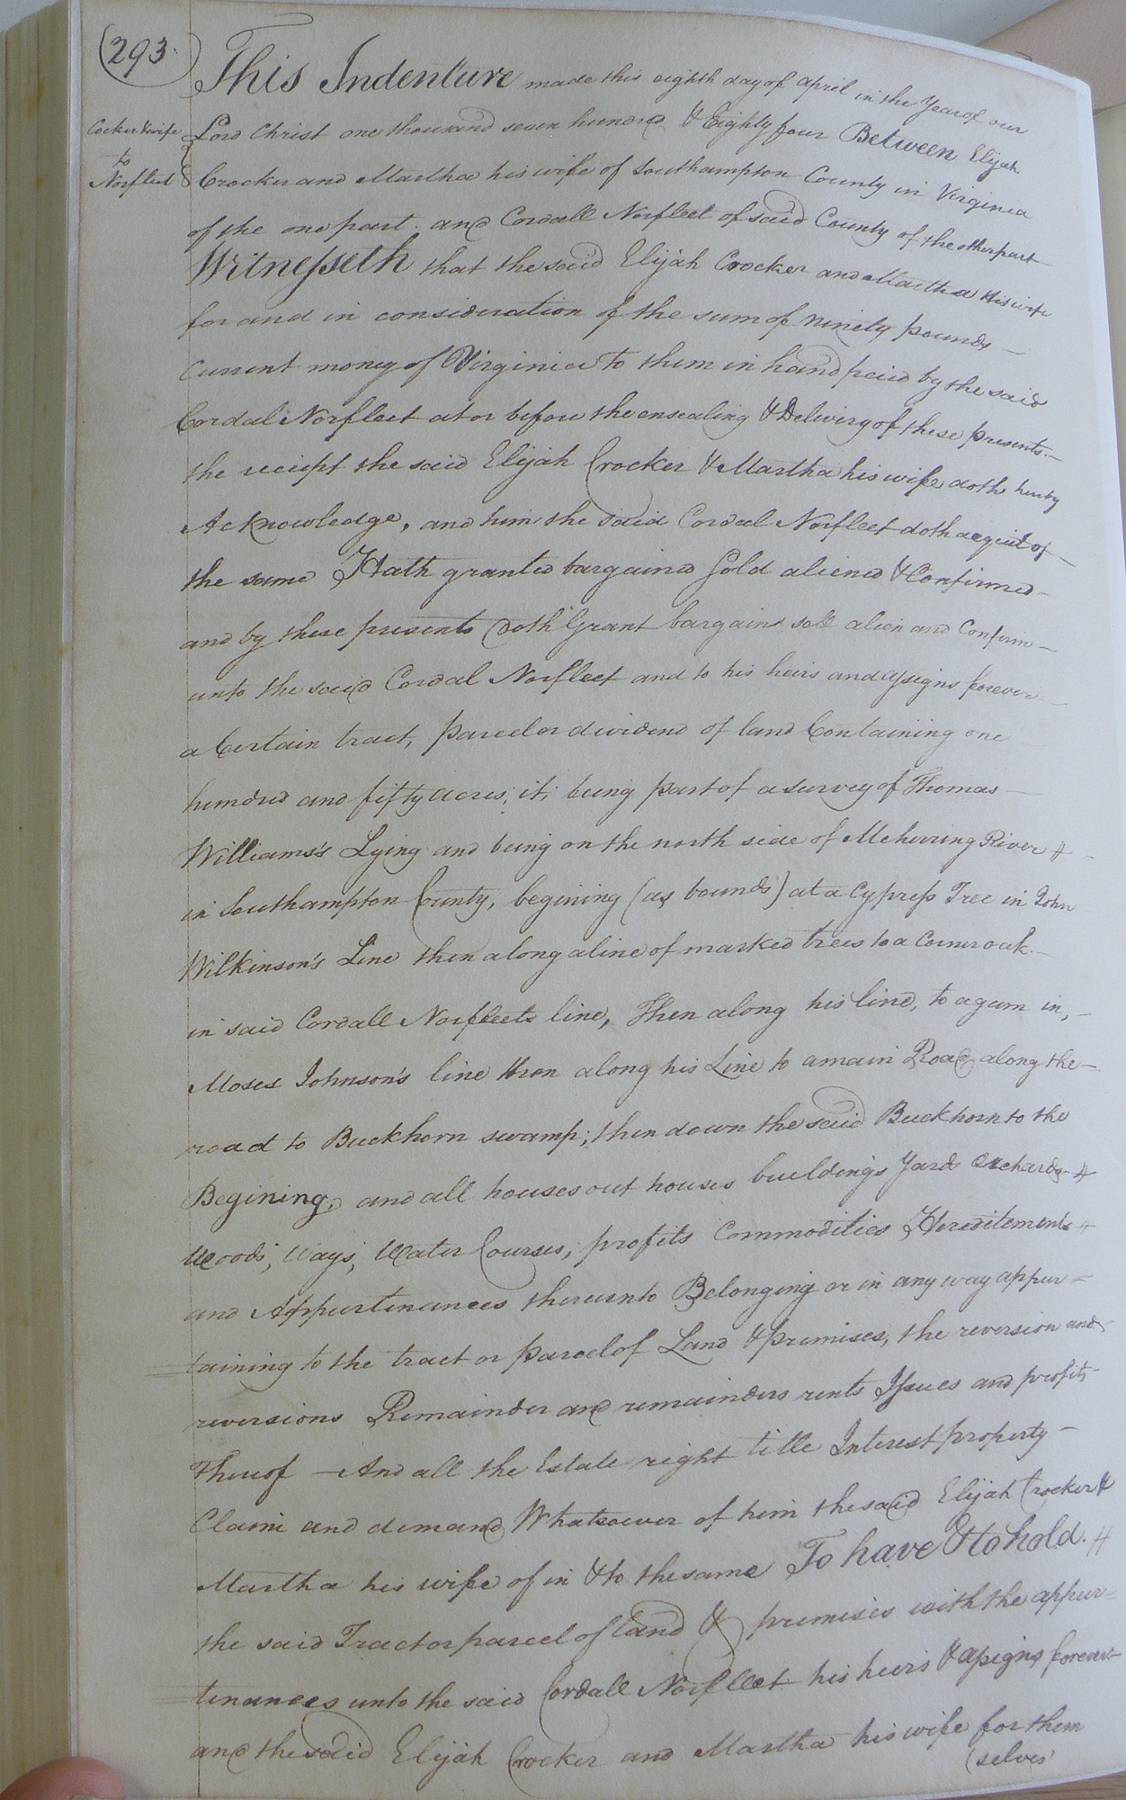 (293.)
Cocker & wife
to
Norfleet
This Indenture made this eighth day of april in the Year of our
Lord Christ one thousand seven hundred & Eighty four Between Elijah
Crocker and Martha his wife of Southampton County in Virginia
of the one part. and Cordall Norfleet of said County of the other part
Witnesseth that the said Elijah Crocker and Martha his wife
for and in consideration of the sum of ninety pounds
Current money of Virginia to them in hand paid by the said
Cordal Norfleet at or before the ensealing & Delivery of these presents
the reciept the said Elijah Crocker & Martha his wife doth hereby
Acknowledge, and him the said Cordal Norfleet doth acquit of
the same Hath granted bargaind Sold aliened & Confirmed
and by these presents doth Grant bargaind sell alien and Confirm
unto the said Cordal Norfleet and to his heirs and assigns forever
a Certain tract, parcel or dividend of land Containing one
hundred and fifty acres, it being part of a survey of Thomas
Williams's Lying and being on the north side of Meherring River &
in Southampton County, begining (as bounds) at a Cypress Tree in John
Wilkinson's Line then along a line of marked trees to a Corner oak
in said Cordall Norfleets line, Then along his line, to a gum in,
Moses Johnson's line then along his Line to a main Road along the
road to Buckhorn swamp; then down the said Buckhorn to the
Begining, and all houses out houses buildings Yards orchards
Woods, Ways, Water Courses, profits Commodities Hereditements
and Appurtinances thereunto Belonging or in any way appur=
=taining to the tract or parcel of Land & premises, the reversion and
reversions Remainder and remainders rents Issues and profits
Thereof - And all the Estate right title Interest property
Claim and demand Whatsoever of him the said Elijah Crocker &
Martha his wife of in & to the same To have & to hold.
the said Tract or parcel of land & premises with the appur=
=tinances unto the said Cordall Norfleet his heirs & assigns forever
and the said Elijah Crocker and Martha his wife for them
(selves